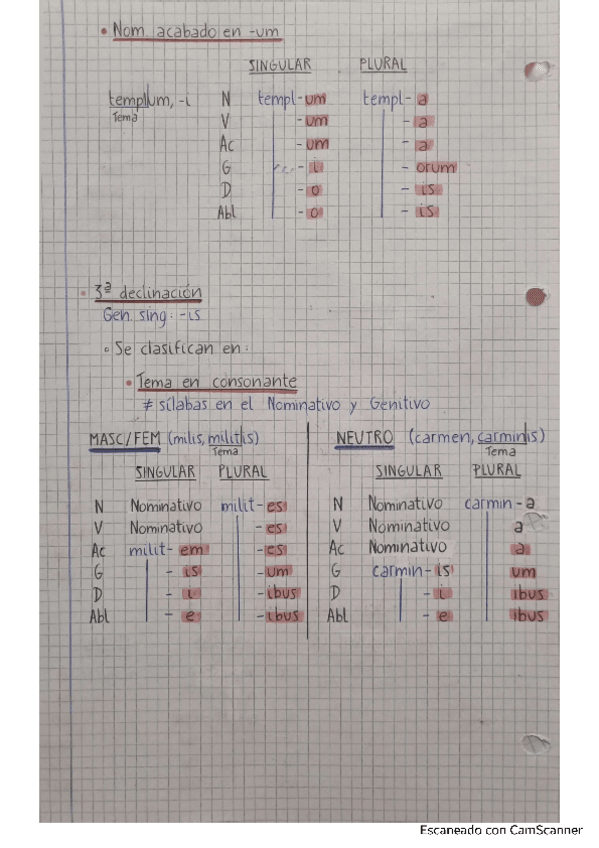 • Nom. acabado en -um
SINGULAR PLURAL
templum, -i N templ-um templ-a
Tema V -um -a
Ac -um -a
G -i -orum
D -o -is
Abl -o -is
• 3ª declinación
Gen. sing: -is
• Se clasifican en:
• Tema en consonante
≠ sílabas en el Nominativo y Genitivo
MASC/FEM (milis, militis)
Tema
SINGULAR PLURAL
N Nominativo milit-es
V Nominativo -es
Ac milit-em -es
G -is -um
D -i -ibus
Abl -e -ibus
NEUTRO (carmen, carminis)
Tema
SINGULAR PLURAL
N Nominativo carmin-a
V Nominativo a
Ac Nominativo a
G carmin-is um
D -i ibus
Abl -e ibus
Escaneado con CamScanner